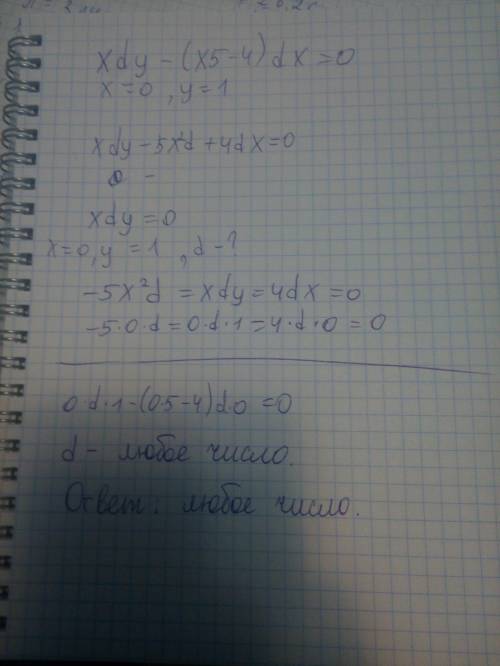 xdy - (x5-4)dx=0
x=0, y=1
xdy-5x²d+4dx=0
0 -
xdy=0
x=0, y=1, d-?
-5x²d = xdy = 4dx = 0
-5·0·d = 0·d·1 = 4·d·0 = 0
0·d·1-(0·5-4)d·0 = 0
d - любое число.
Ответ: любое число.